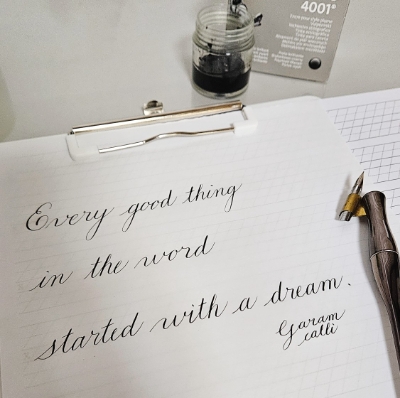 4001®
Every good thing
in the word
started with a dream.
Garam
calli